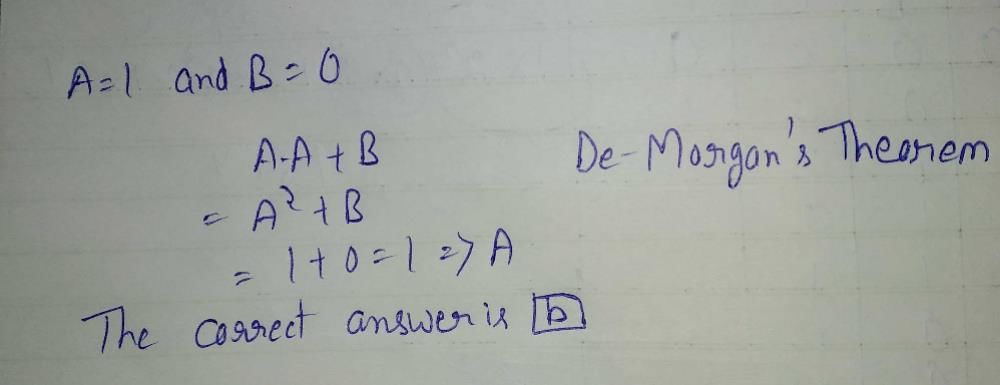 A=1 and B=0
A·A+B
De-Morgan's Theorem
= A²+B
= 1+0=1 => A
The correct answer is b